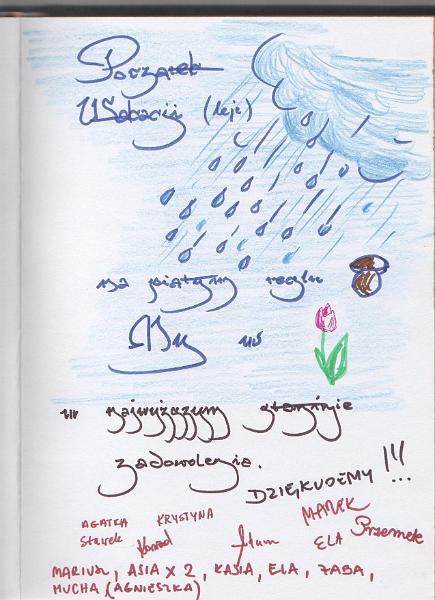 Początek
Wakacji (leje)
na piątym reglu
My już
w najwyższym stopniu
zadowolenia.
DZIĘKUJEMY !!!...
AGATKA KRYSTYNA MAREK
Konrad Adam ELA Przemek
MARIUSZ, ASIA x 2, KASIA, ELA, ŻABA,
MUCHA (AGNIESZKA)